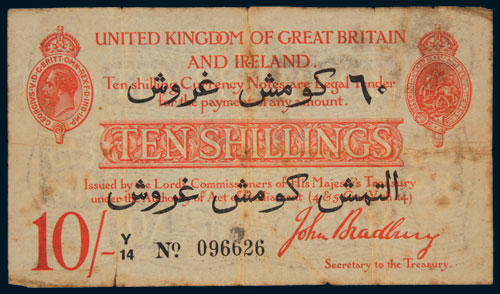 UNITED KINGDOM OF GREAT BRITAIN
AND IRELAND.
Ten shilling Currency Notes are Legal Tender
for the payment of any amount.
٦٠ كومش غروش
TEN SHILLINGS
Issued by the Lords Commissioners of His Majesty's Treasury
under the Authority of Act of Parliament (4 & 5
التمش كومش غروش
10/-
Y/14 No. 096626
John Bradbury
Secretary to the Treasury.
GEORGIVS·V·D·G·BRITT·OMN·REX·F·D·IND·IMP·